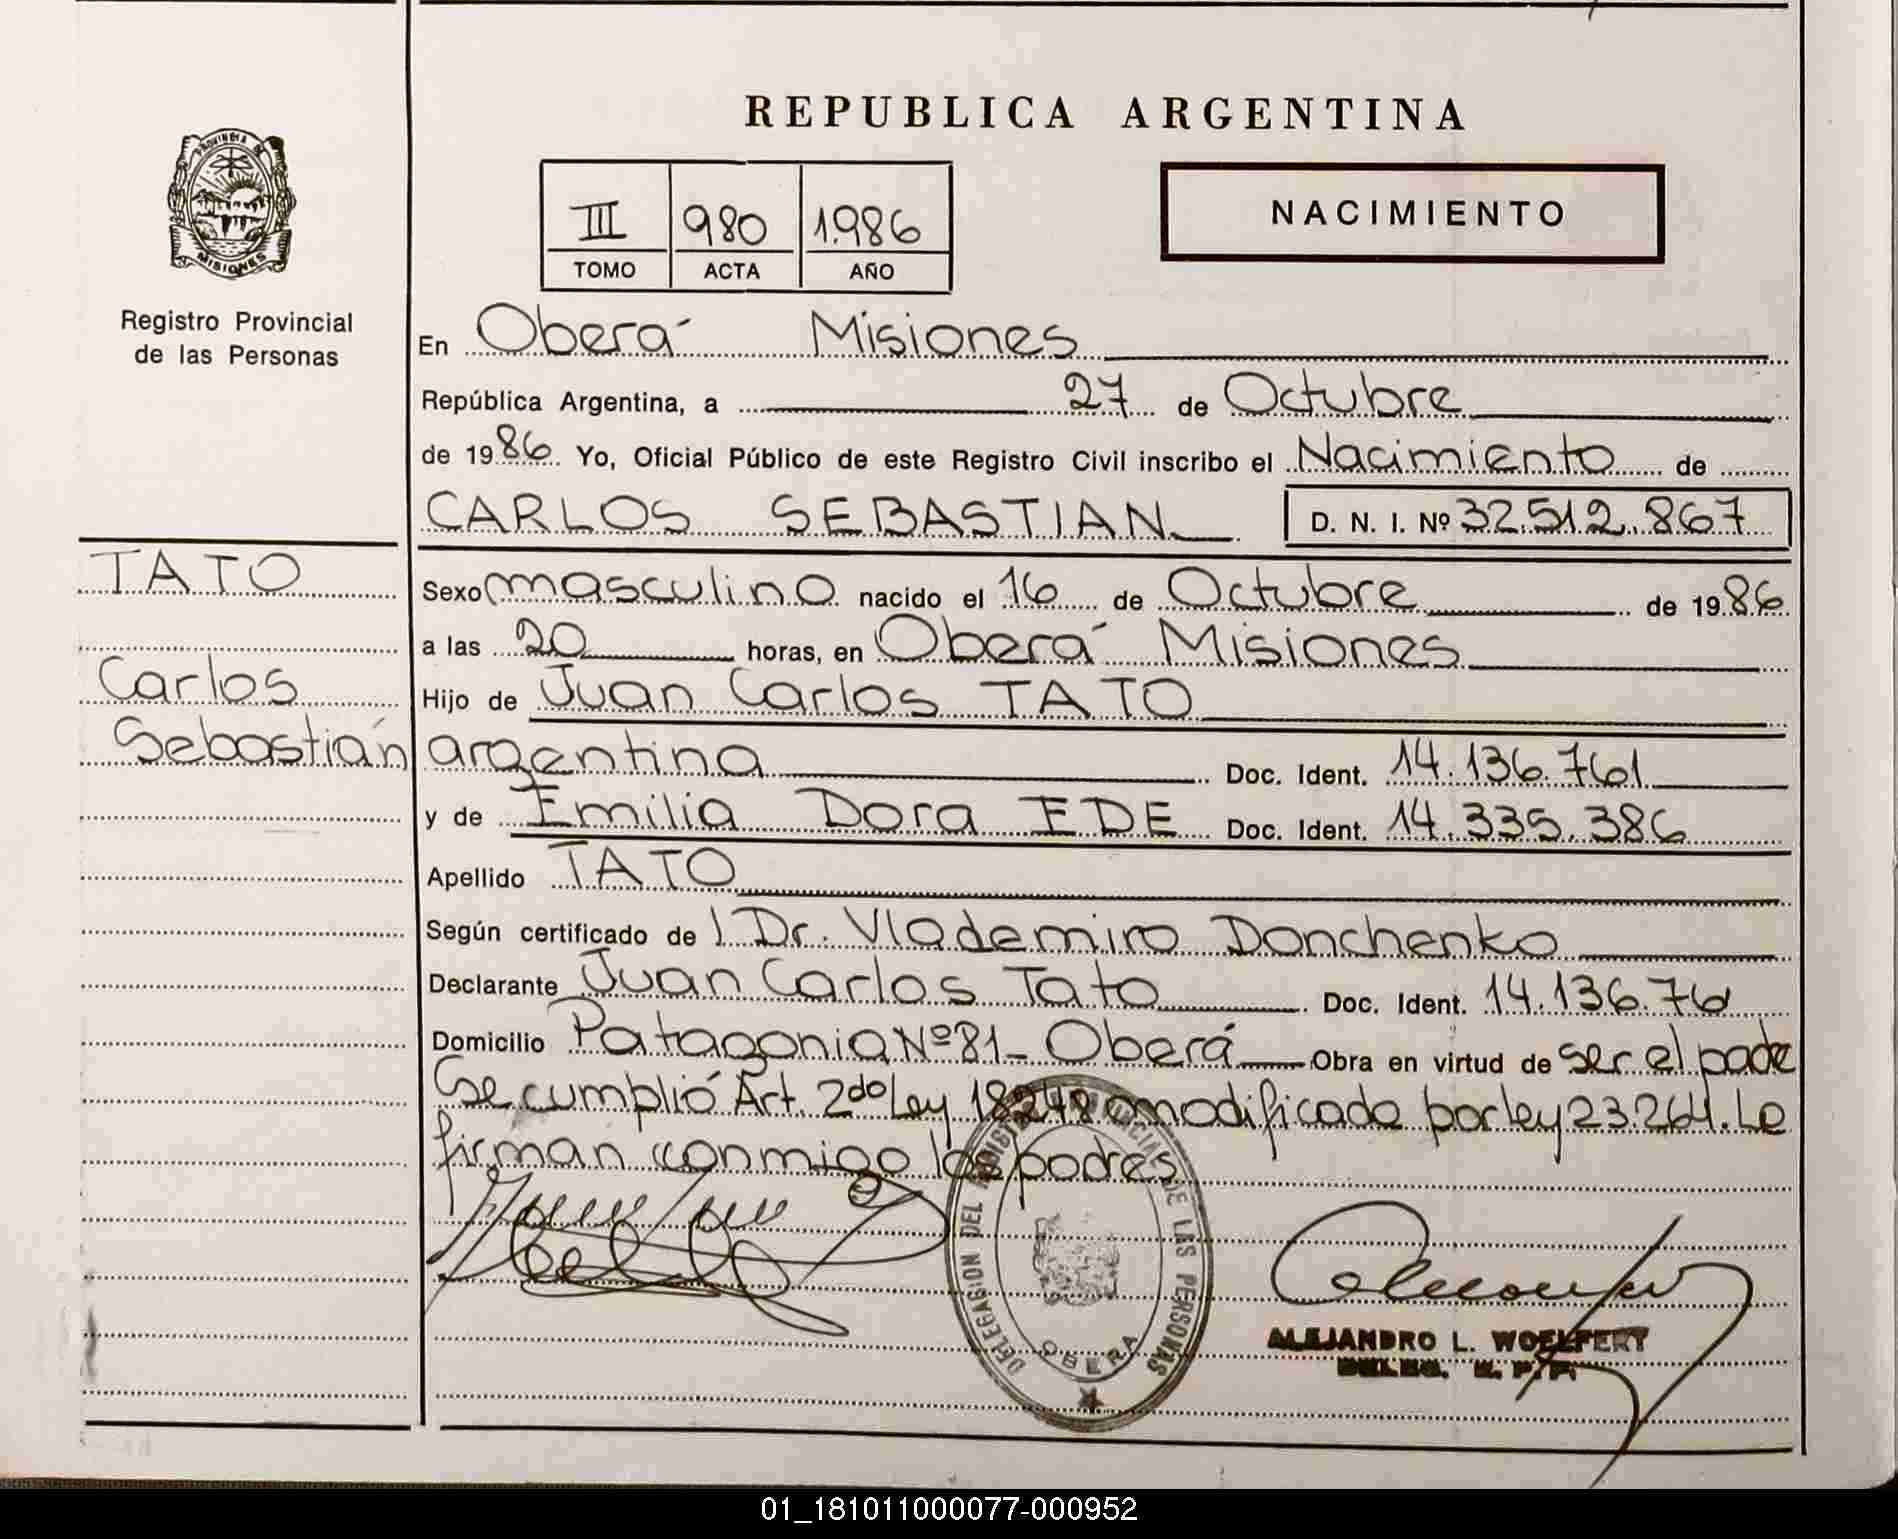 REPUBLICA ARGENTINA
PROVINCIA DE
MISIONES
Registro Provincial
de las Personas
III 980 1.986
TOMO ACTA AÑO
NACIMIENTO
En Oberá Misiones
República Argentina, a 27 de Octubre
de 1986 Yo, Oficial Público de este Registro Civil inscribo el Nacimiento de
CARLOS SEBASTIAN D. N. I. Nº 32.512.867
TATO
Carlos
Sebastián
Sexo masculino nacido el 16 de Octubre de 1986
a las 20 horas, en Oberá Misiones
Hijo de Juan Carlos TATO
argentina Doc. Ident. 14.136.761
y de Emilia Dora EDE Doc. Ident. 14.335.386
Apellido TATO
Según certificado de l Dr. Vlademiro Donchenko
Declarante Juan Carlos Tato Doc. Ident. 14.136.761
Domicilio Patagonia Nº 81- Oberá Obra en virtud de ser el padre
Se cumplió Art. 2do Ley 18248 modificado por ley 23.264. Le
firman conmigo los padres
DELEGACION DEL REGISTRO PROVINCIAL DE LAS PERSONAS
OBERA
ALEJANDRO L. WOELFERT
DELEG. R. P. P.
01_181011000077-000952